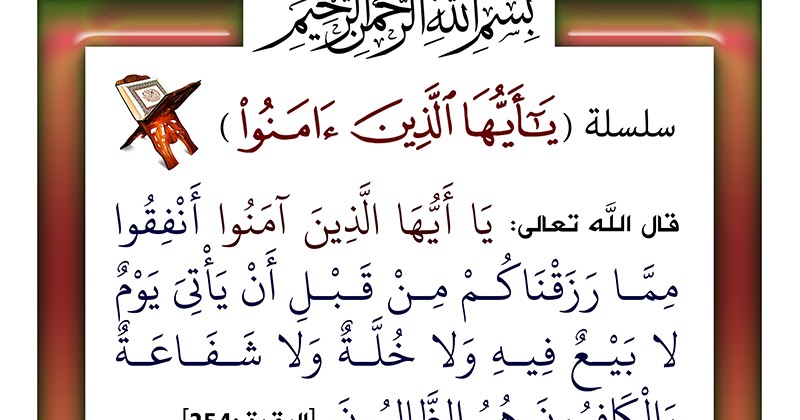 بِسْمِ اللَّهِ الرَّحْمَنِ الرَّحِيمِ
سلسلة (يَـٰٓأَيُّهَا ٱلَّذِينَ ءَامَنُوا۟)
قال الله تعالى: يَا أَيُّهَا الَّذِينَ آمَنُوا أَنْفِقُوا
مِمَّا رَزَقْنَاكُمْ مِنْ قَبْلِ أَنْ يَأْتِيَ يَوْمٌ
لا بَيْعٌ فِيهِ وَلا خُلَّةٌ وَلا شَفَاعَةٌ
وَالْكَافِرُونَ هُمُ الظَّالِمُونَ [البقرة:254]